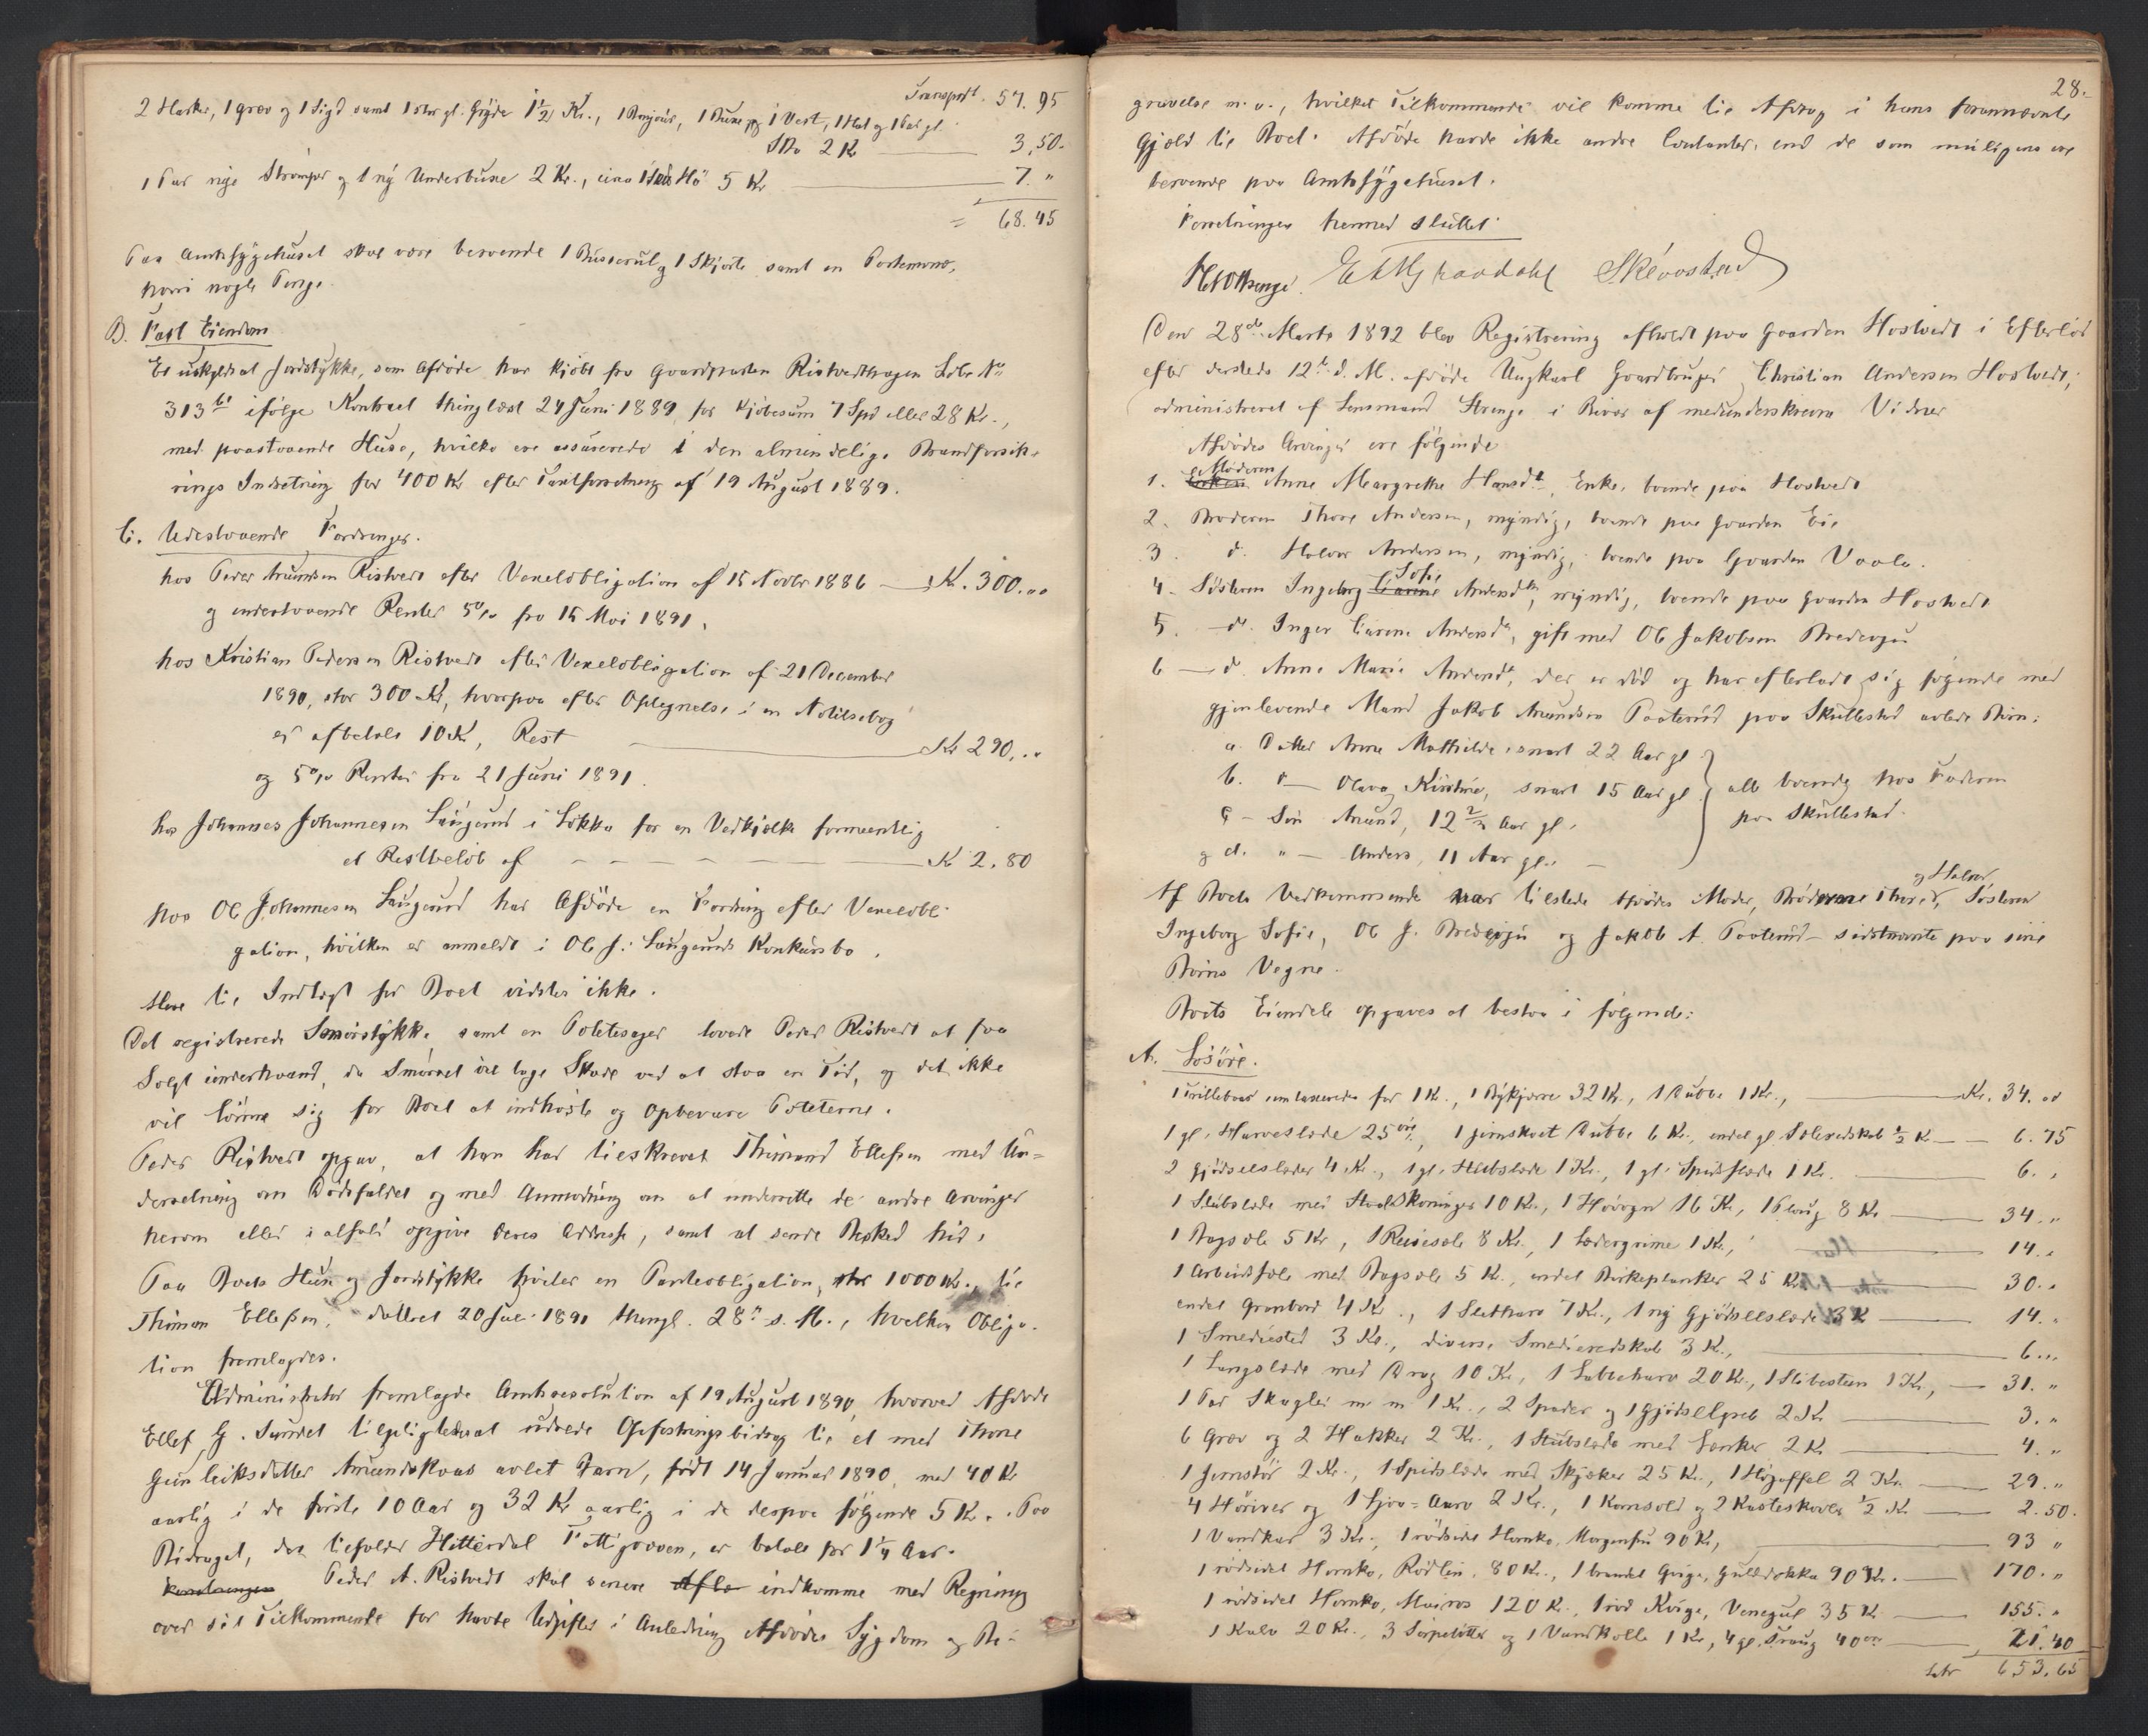 Transport. 57.95
2 Harker, 1 Græv og 1 Sigd samt 1 stor gl. Gryde 1 1/2 Kr., 1 Bonjour, 1 Buxe og 1 Vest, 1 Hat og 1 Par gl.
Sko 2 K — 3,50.
1 Par nye Strømper og 1 ny Underbuxe 2 Kr., circa Hø 5 Kr — 7. "
= 68.45
Paa Amtssygehuset skal være beroende 1 Busserul og 1 Skjorte samt en Portemonæ,
hvori nogle Penge.
B. Fast Eiendom
Et uskyldsat Jordstykke, som Afdøde har kjøbt fra Gaardparten Ristvedthagen Løbe No
313 b ifølge Kontract thinglæst 24 Juni 1889 for Kjøbesum 7 Spd eller 28 Kr.,
med paastaaende Huse, hvilke ere assurerede i den almindelige Brandforsik-
rings Indretning for 400 Kr efter Taxtforretning af 19 August 1889.
C. Udestaaende Fordringer.
hos Peder Amundsen Ristvedt efter Vexelobligation af 15 Novbr 1886 — Kr. 300...
og inderstaaende Renter 5% fra 15 Mai 1891.
hos Kristian Pedersen Ristvedt efter Vexelobligation af 21 December
1890, stor 300 Kr, hvorpaa efter Optegnelse i en Notitsebog
er afbetalt 10 Kr, Rest — Kr 290,..
og 5% Renter fra 21 Juni 1891.
hos Johannes Johannesen Laugerud i Løkka for en Vedkjælke formentlig
et Restbeløb af — Kr 2.80
hos Ole Johannesen Laugerud har Afdøde en Fordring efter Vexelobli-
gation, hvilken er anmeldt i Ole J. Laugeruds Konkursbo.
Mere til Indtægt for Boet vidstes ikke.
Det registrerede Smørstykke samt en Potetesager lovede Peder Ristvedt at faa
Solgt underhaand, da Smørret vil tage Skade ved at staa en Tid, og det ikke
vil lønne sig for Boet at indhøste og opbevare Poteterne.
Peder Ristvedt opgav, at han har tilskrevet Thimand Ellefsen med Un-
derretning om Dødsfaldet og med Anmodning om at underrette de andre Arvinger
herom eller i alfald opgive deres Addresse, samt at sende Besked hid.
Paa Boets Huse og Jordstykke hviler en Panteobligation, stor 1000 Kr., til
Thiman Ellefsen, dateret 20 Juli 1891 thingl. 28de s. M., hvilken Obliga-
tion fremlagdes.
Administrator fremlagde Amtsresolution af 19 August 1890, hvorved Afdøde
Ellef G. Sundet tilpligtedes at udrede Opfostringsbidrag til et med Thone
Gunleiksdatter Amundskaas avlet Barn, født 14 Januar 1890, med 40 Kr
aarlig i de første 10 Aar og 32 Kr aarlig i de derpaa følgende 5 Kr. Paa
Bidraget, der tilfalder Hitterdal Fattigvæsen, er betalt for 1 1/4 Aar.
Forretningen Peder A. Ristvedt skal senere indkomme med Regning
over sit Tilkommende for havte Udgifter i Anledning Afdødes Sygdom og Be-
28.
gravelse m.v., hvilket Tilkommende vil komme til Afdrag i hans forannævnte
Gjæld til Boet. Afdøde havde ikke andre Contanter, end de som muligens ere
beroende paa Amtssygehuset.
Forretningen hermed sluttet.
Skivostad
Den 28de Marts 1892 blev Registrering afholdt paa Gaarden Hostvedt i Efterlod
efter dersteds 12te d. M. afdøde Ungkarl Gaardbruger Christian Andersen Hostvedt,
administreret af Lensmand Strenge i Bivær af medunderskrevne Vidner
Afdødes Arvinger ere følgende
1. Moderen Anne Margrethe Hansdt, Enke, boende paa Hostvedt
2. Broderen Thore Andersen, myndig, boende paa Gaarden Eie
3. d. Halvor Andersen, myndig, boende paa Gaarden Vaale.
4. Søsteren Ingeborg Sofie Andersdtr, myndig, boende paa Gaarden Hostvedt
5. — d. Inger Karine Andersdt, gift med Ole Jakobsen
6 — d. Anne Marie Andersdt, der er død og har efterladt sig følgende med
gjenlevende Mand Jakob Amundsen Paaterud paa Skullestad avlede Børn:
a. Datter Anne Mathilde, snart 22 Aar gl
b. d — Olava Kirstine, snart 15 Aar gl
c — Søn Amund, 12 2/3 Aar gl.
og d. " — Anders, 11 Aar gl. —
alle boende hos Faderen
paa Skullestad.
Af Boets Vedkommende var tilstede Afdødes Moder, Brødrene Thore og Halvor, Søsteren
Ingeborg Sofie, Ole J. og Jakob A. Paaterud — sidstnævnte paa sine
Børns Vegne.
Boets Eiendele opgaves at bestaa i følgende:
A. Løsøre.
1 Trillebaar som taxeredes for 1 K., 1 Bykjærre 32 Kr., 1 Dubbe 1 Kr., — Kr. 34...
1 gl. Harveslæde 25 øre, 1 jernskoet Dubbe 6 Kr., endel gl. Seleredskab 1/2 K — 6.75
2 Gjødselslæder 4 Kr., 1 gl. Stubslæde 1 Kr., 1 gl. Spidslæde 1 Kr. — 6. "
1 Stubslæde med 10 Kr., 1 Høvogn 16 Kr, 1 Ploug 8 Kr — 34. "
1 Bogsæle 5 Kr, 1 Reisesæle 8 Kr., 1 Lædergrime 1 Kr, — 14. "
1 Arbeidssæle med Bogsæle 5 Kr., endel Birkeplanker 25 Kr — 30. "
endel Granbord 4 Kr., 1 Sletharv 7 Kr., 1 ny Gjødselslæde 3 K — 14. "
1 Smediested 3 Kr., diverse Smedieredskab 3 Kr., — 6...
1 Langslæde med Drag 10 Kr, 1 Labbeharv 20 Kr., 1 Slibesteen 1 Kr, — 31. "
1 Par Skagler m m 1 Kr., 2 Spader og 1 Gjødselgreb 2 Kr — 3. "
6 Græv og 2 Hakker 2 Kr., 1 Stubslæde med Lænker 2 Kr — 4. "
1 Jernstør 2 Kr., 1 Spidslæde med Skjæker 25 Kr., 1 Høgaffel 2 Kr. — 29. "
4 Høriver og 1 2 Kr., 1 Kornsold og 2 Kasteskovle 1/2 Kr — 2.50.
1 Vandkar 3 Kr., 1 rødsidet Hornko, Morgenfru 90 Kr, — 93 "
1 rødsidet Hornko, Rødlin, 80 Kr., 1 brandet Qvige, Gulddokka 90 Kr. — 170. "
1 rødsidet Hornko, Mairos 120 Kr., 1 rød Kvige, Venegul 35 K — 155. "
1 Kalv 20 Kr., 3 Sørpebøtter og 1 Vandkolle 1 Kr, 4 gl. Traug 40 øre — 21.40
Latr 653.65